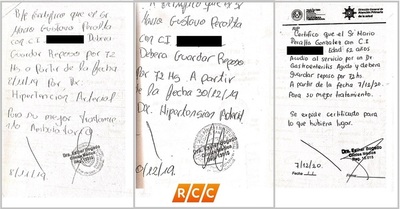 Certifico que el Sr
Mario Gustavo Peralta
con CI Debera
Guardar Reposo por 72
Hs A partir de la fecha
Hipertension Arterial
Para su mejor
Ambulatorio
Dra. Esther
8/11/19.
que el Sr
Mario Gustavo Peralta
Con CI
Debera Guardar Reposo
Por 72 Hs A partir
de la fecha 30/12/19
DX. Hipertension Arterial
Dra. Esther
/12/19
RCC
Certifico que el Sr Mario
Peralta Gonzales con C
Edad 12 años
Acudio al servicio por un Dx
Gastroenteritis Aguda y debera
guardar reposo por 72 hs
A partir de la fecha 7/12/20.
Para su mejor tratamiento.
Se expide certificado para
lo que hubiera lugar.
Dra. Esther
7/12/20.
Fecha
Firma